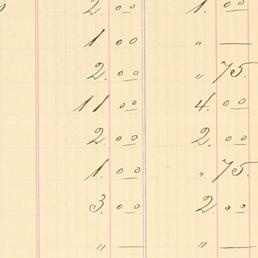 2. 00 1. 00
1. 00 " —
2. 00 " 75.
11 00 4. 00
2. 00 2. 00
1. 00 " 75.
3. 00 2 00
" — " —